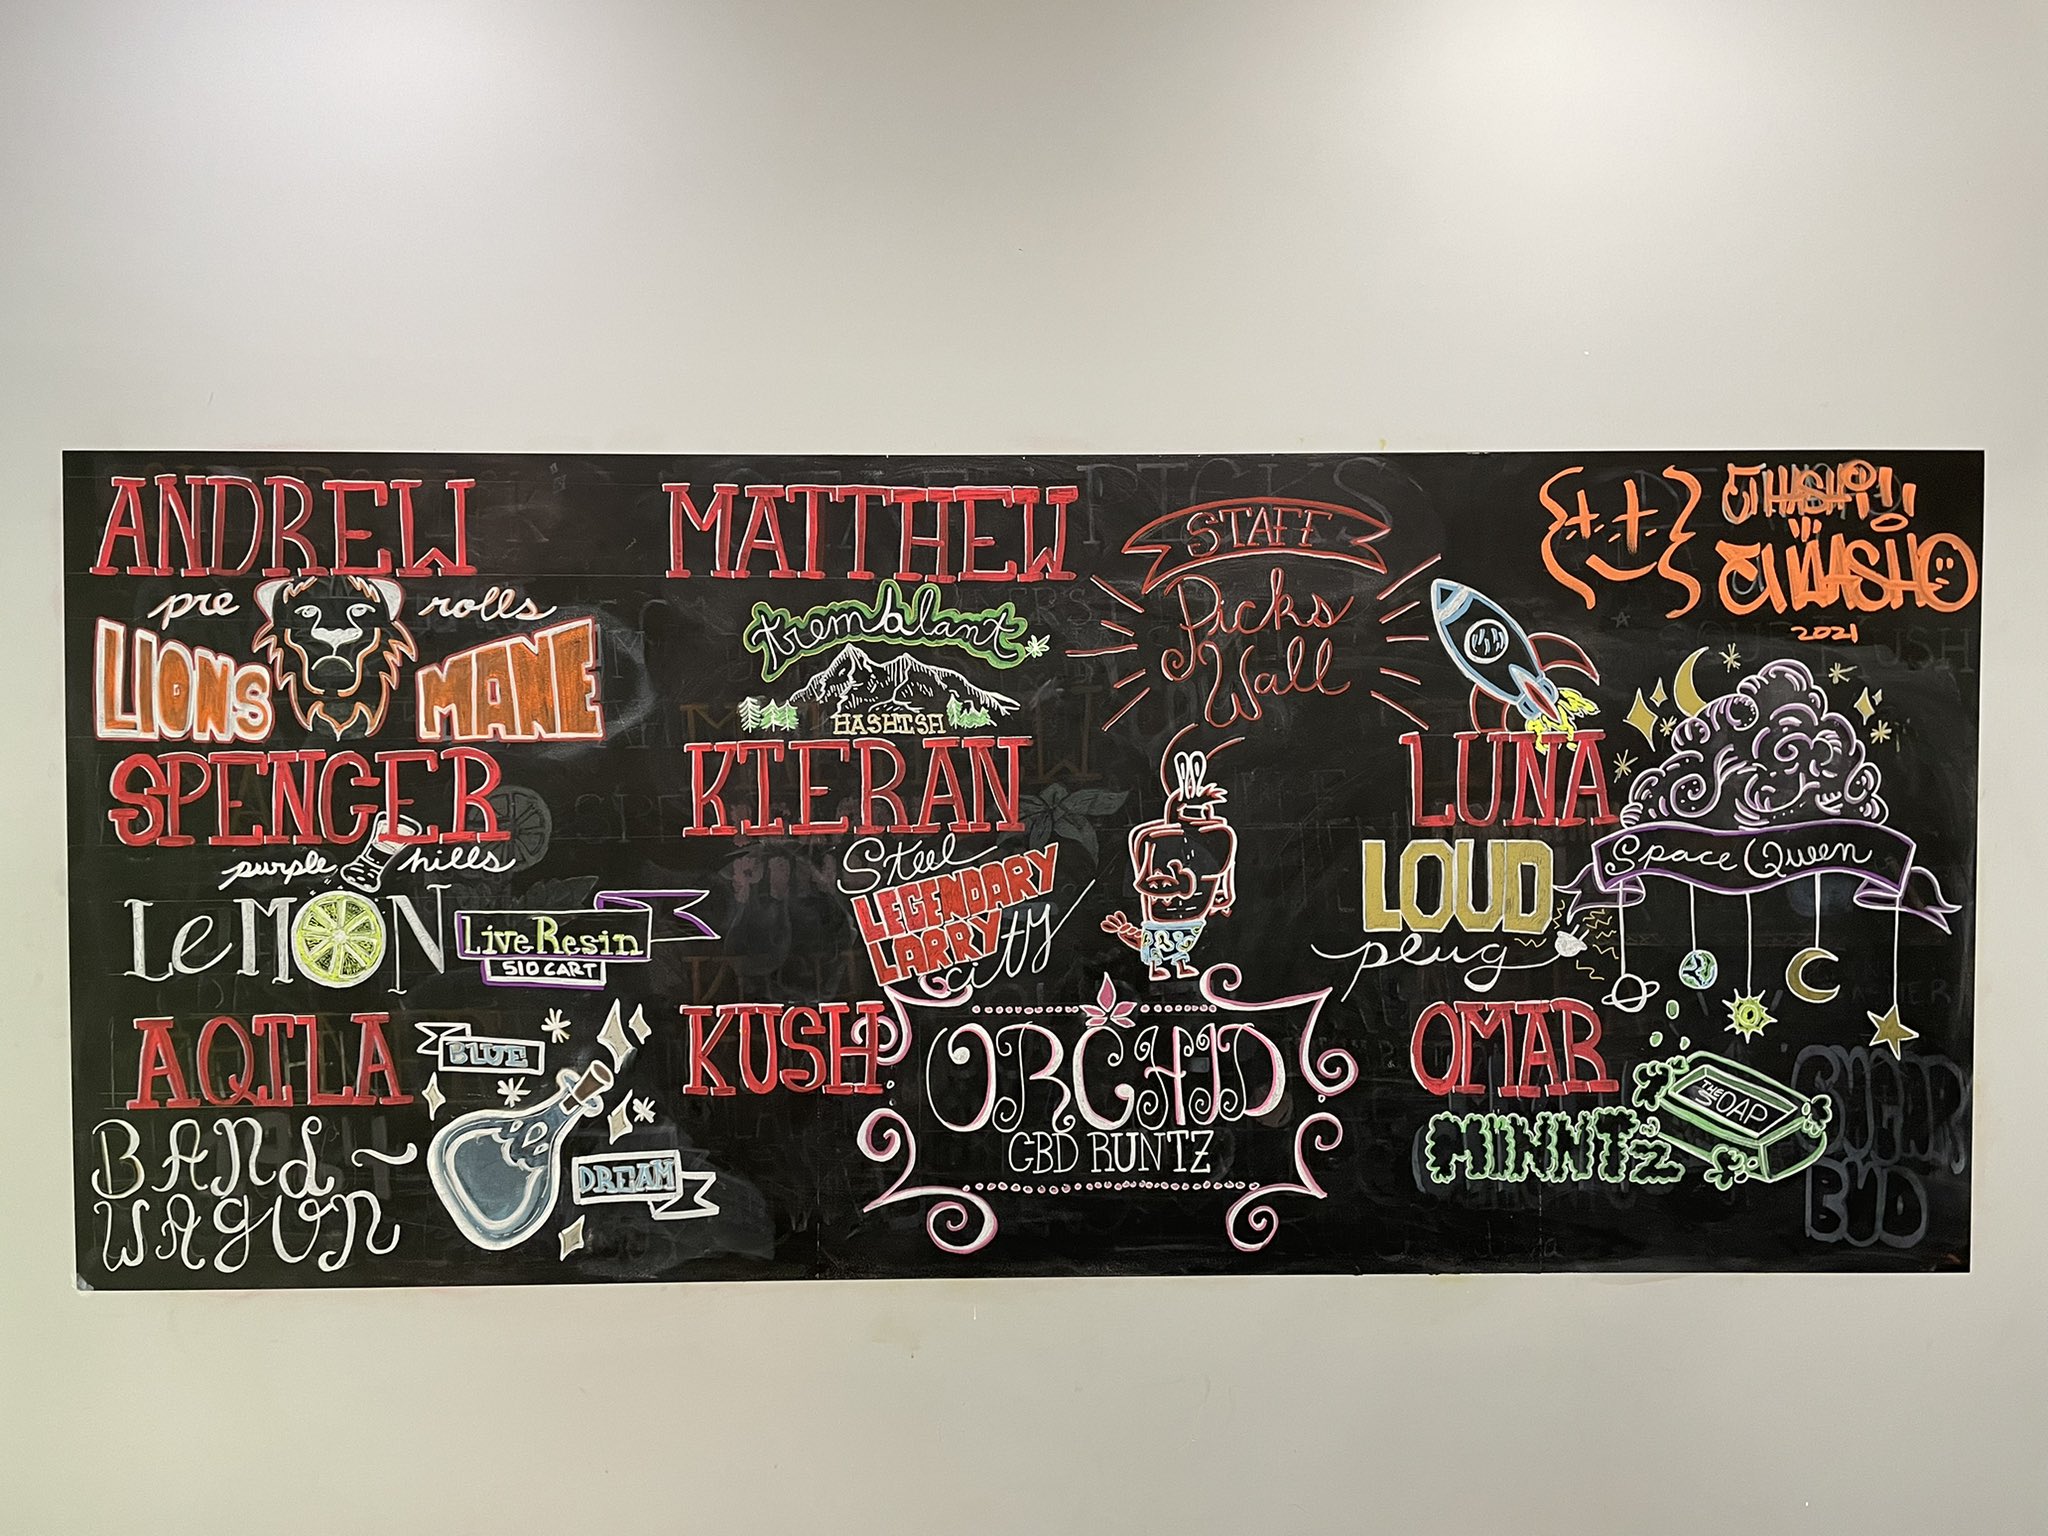 ANDREW
pre rolls
LIONS MANE
SPENCER
purple hills
LeMON
Live Resin
510 CART
AQILA
BLUE
DREAM
BAND-
WAGON
MATTHEW
tremblant
HASHISH
KIERAN
Steel
LEGENDARY
LARRY
city
KUSH
ORCHID
CBD RUNTZ
STAFF
Picks
Wall
LUNA
LOUD
plug
Space Queen
OMAR
MINNTZ
THE
SOAP
2021
SUGAR
BUD
PICKS